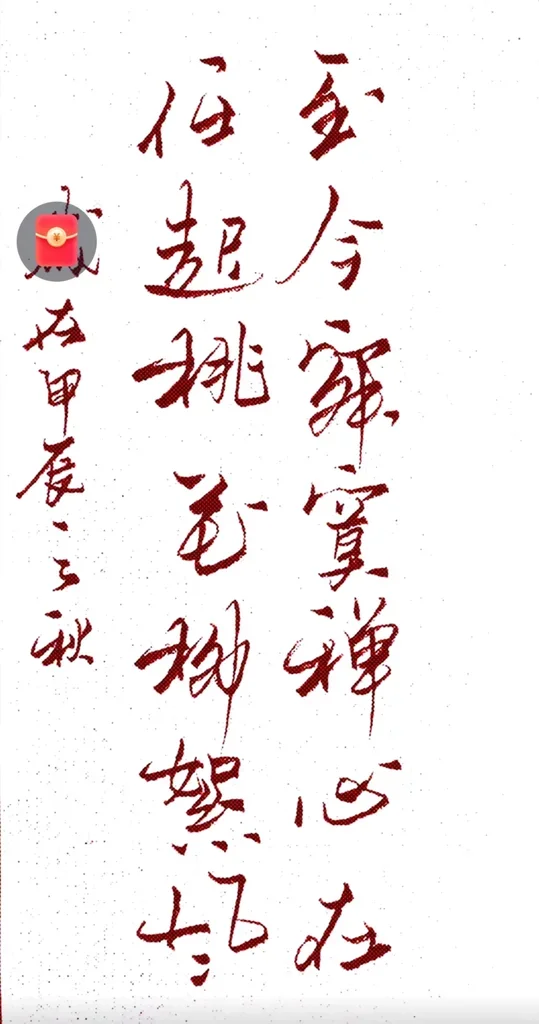 至今寂寞禅心在
任起桃花柳絮风
在甲辰之秋